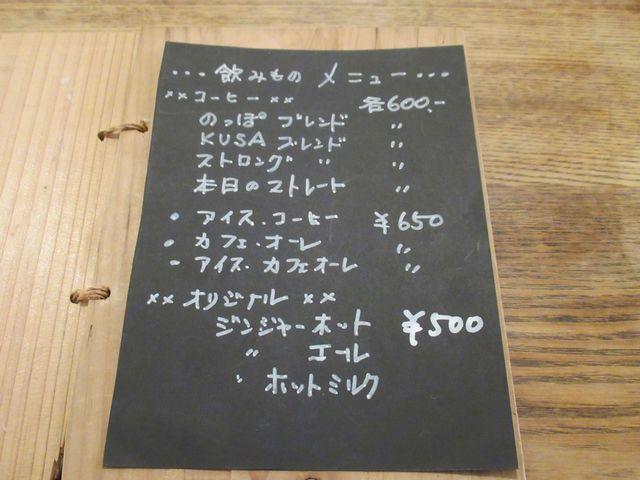 ・・・飲みもの メニュー・・・
×× コーヒー ×× 各600.-
のっぽ ブレンド 〃
KUSA ブレンド 〃
ストロング 〃 〃
本日のストレート 〃
・アイス・コーヒー ¥650
・カフェ・オーレ 〃
- アイス・カフェオーレ 〃
×× オリジナル ××
ジンジャーホット ¥500
〃 エール
〃 ホットミルク